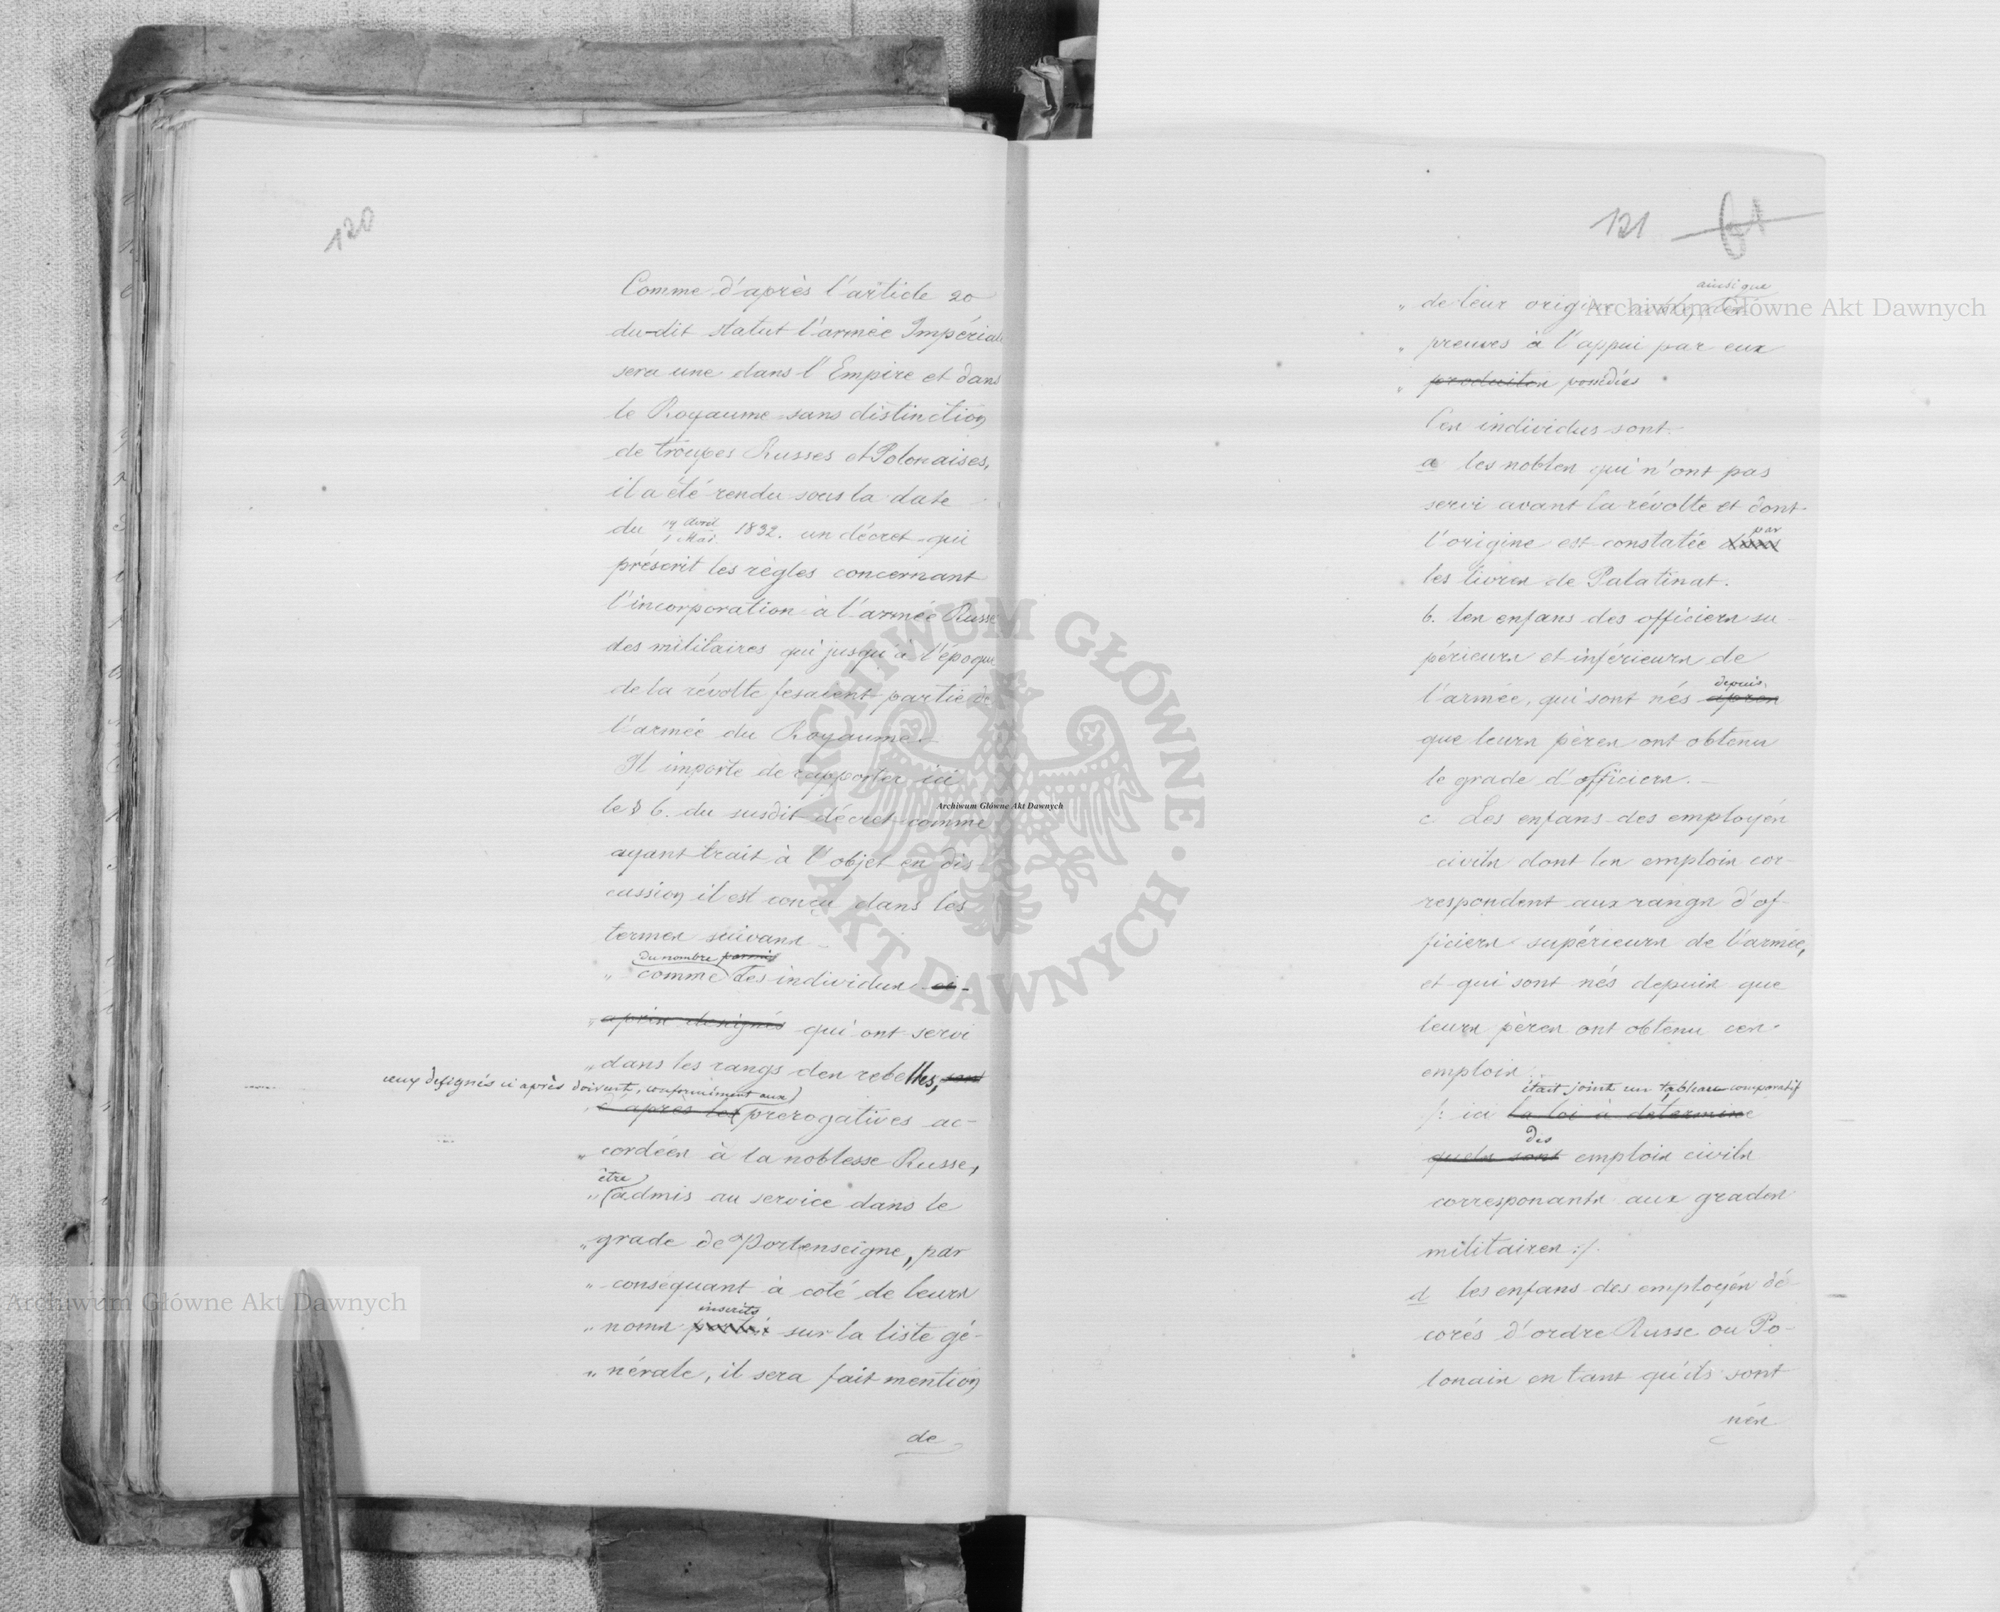 120
Comme d'après l'article 20
du-dit statut l'armée Impériale
sera une dans l'Empire et dans
le Royaume sans distinction
de troupes Russes et Polonaises,
il a été rendu sous la date
du 19 Avril / 1 Mai. 1832. un décret qui
préscrit les règles concernant
l'incorporation à l'armée Russe
des militaires qui jusqu'à l'époque
de la révolte fesaient partie de
l'armée du Royaume.
Il importe de rapporter ici
le § 6. du susdit décret comme
ayant trait à l'objet en dis-
cussion il est conçu dans les
termes suivans
du nombre parmis
" comme des individus ci-
" après designés qui ont servi
" dans les rangs des rebelles, sont
ceux designés ci après doivent, conformément aux
" ci après les prerogatives ac-
" cordées à la noblesse Russe,
être
" admis au service dans le
" grade de Portenseigne, par
" conséquant à coté de leurs
inscrits
" noms portés sur la liste gé-
" nérale, il sera fait mention
de
121 61
ainsi que
" de leur origine
" preuves à l'appui par eux
" produites
Ces individus sont.
a les nobles qui n'ont pas
servi avant la révolte et dont
par
l'origine est constatée dans
les livres de Palatinat.
b. les enfans des officiers su-
périeurs et inférieurs de
depuis
l'armée, qui sont nés apres
que leurs pères ont obtenu
le grade d'officiers.
c. Les enfans des employés
civils dont les emplois cor-
respondent aux rangs d'of-
ficiers supérieurs de l'armée,
et qui sont nés depuis que
leurs pères ont obtenu ces
emplois
était joint un tableau comparatif
/: ici la loi à determine
des
quels sont emplois civils
corresponants aux grades
militaires :/.
d les enfans des employés dé-
corés d'ordre Russe ou Po-
lonais en tant qu'ils sont
nés
Archiwum Główne Akt Dawnych
Archiwum Główne Akt Dawnych
Archiwum Główne Akt Dawnych
ARCHIWUM GŁÓWNE · AKT DAWNYCH ·